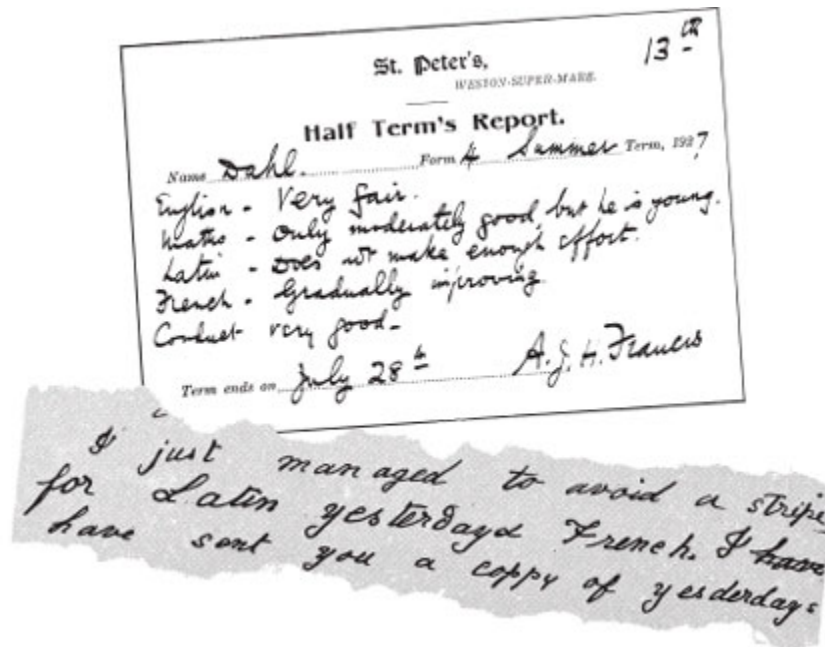 St. Peter's,
13th
WESTON-SUPER-MARE.
Half Term's Report.
Name Dahl. Form 4 Summer Term, 1927
English - Very fair.
Maths - Only moderately good, but he is young.
Latin - Does not make enough effort.
French - Gradually improving.
Conduct very good -
Term ends on July 28th A.J.H. Francis
I just managed to avoid a stripe,
for Latin yesterdayd French. I have
have sent you a coppy of yesderdays